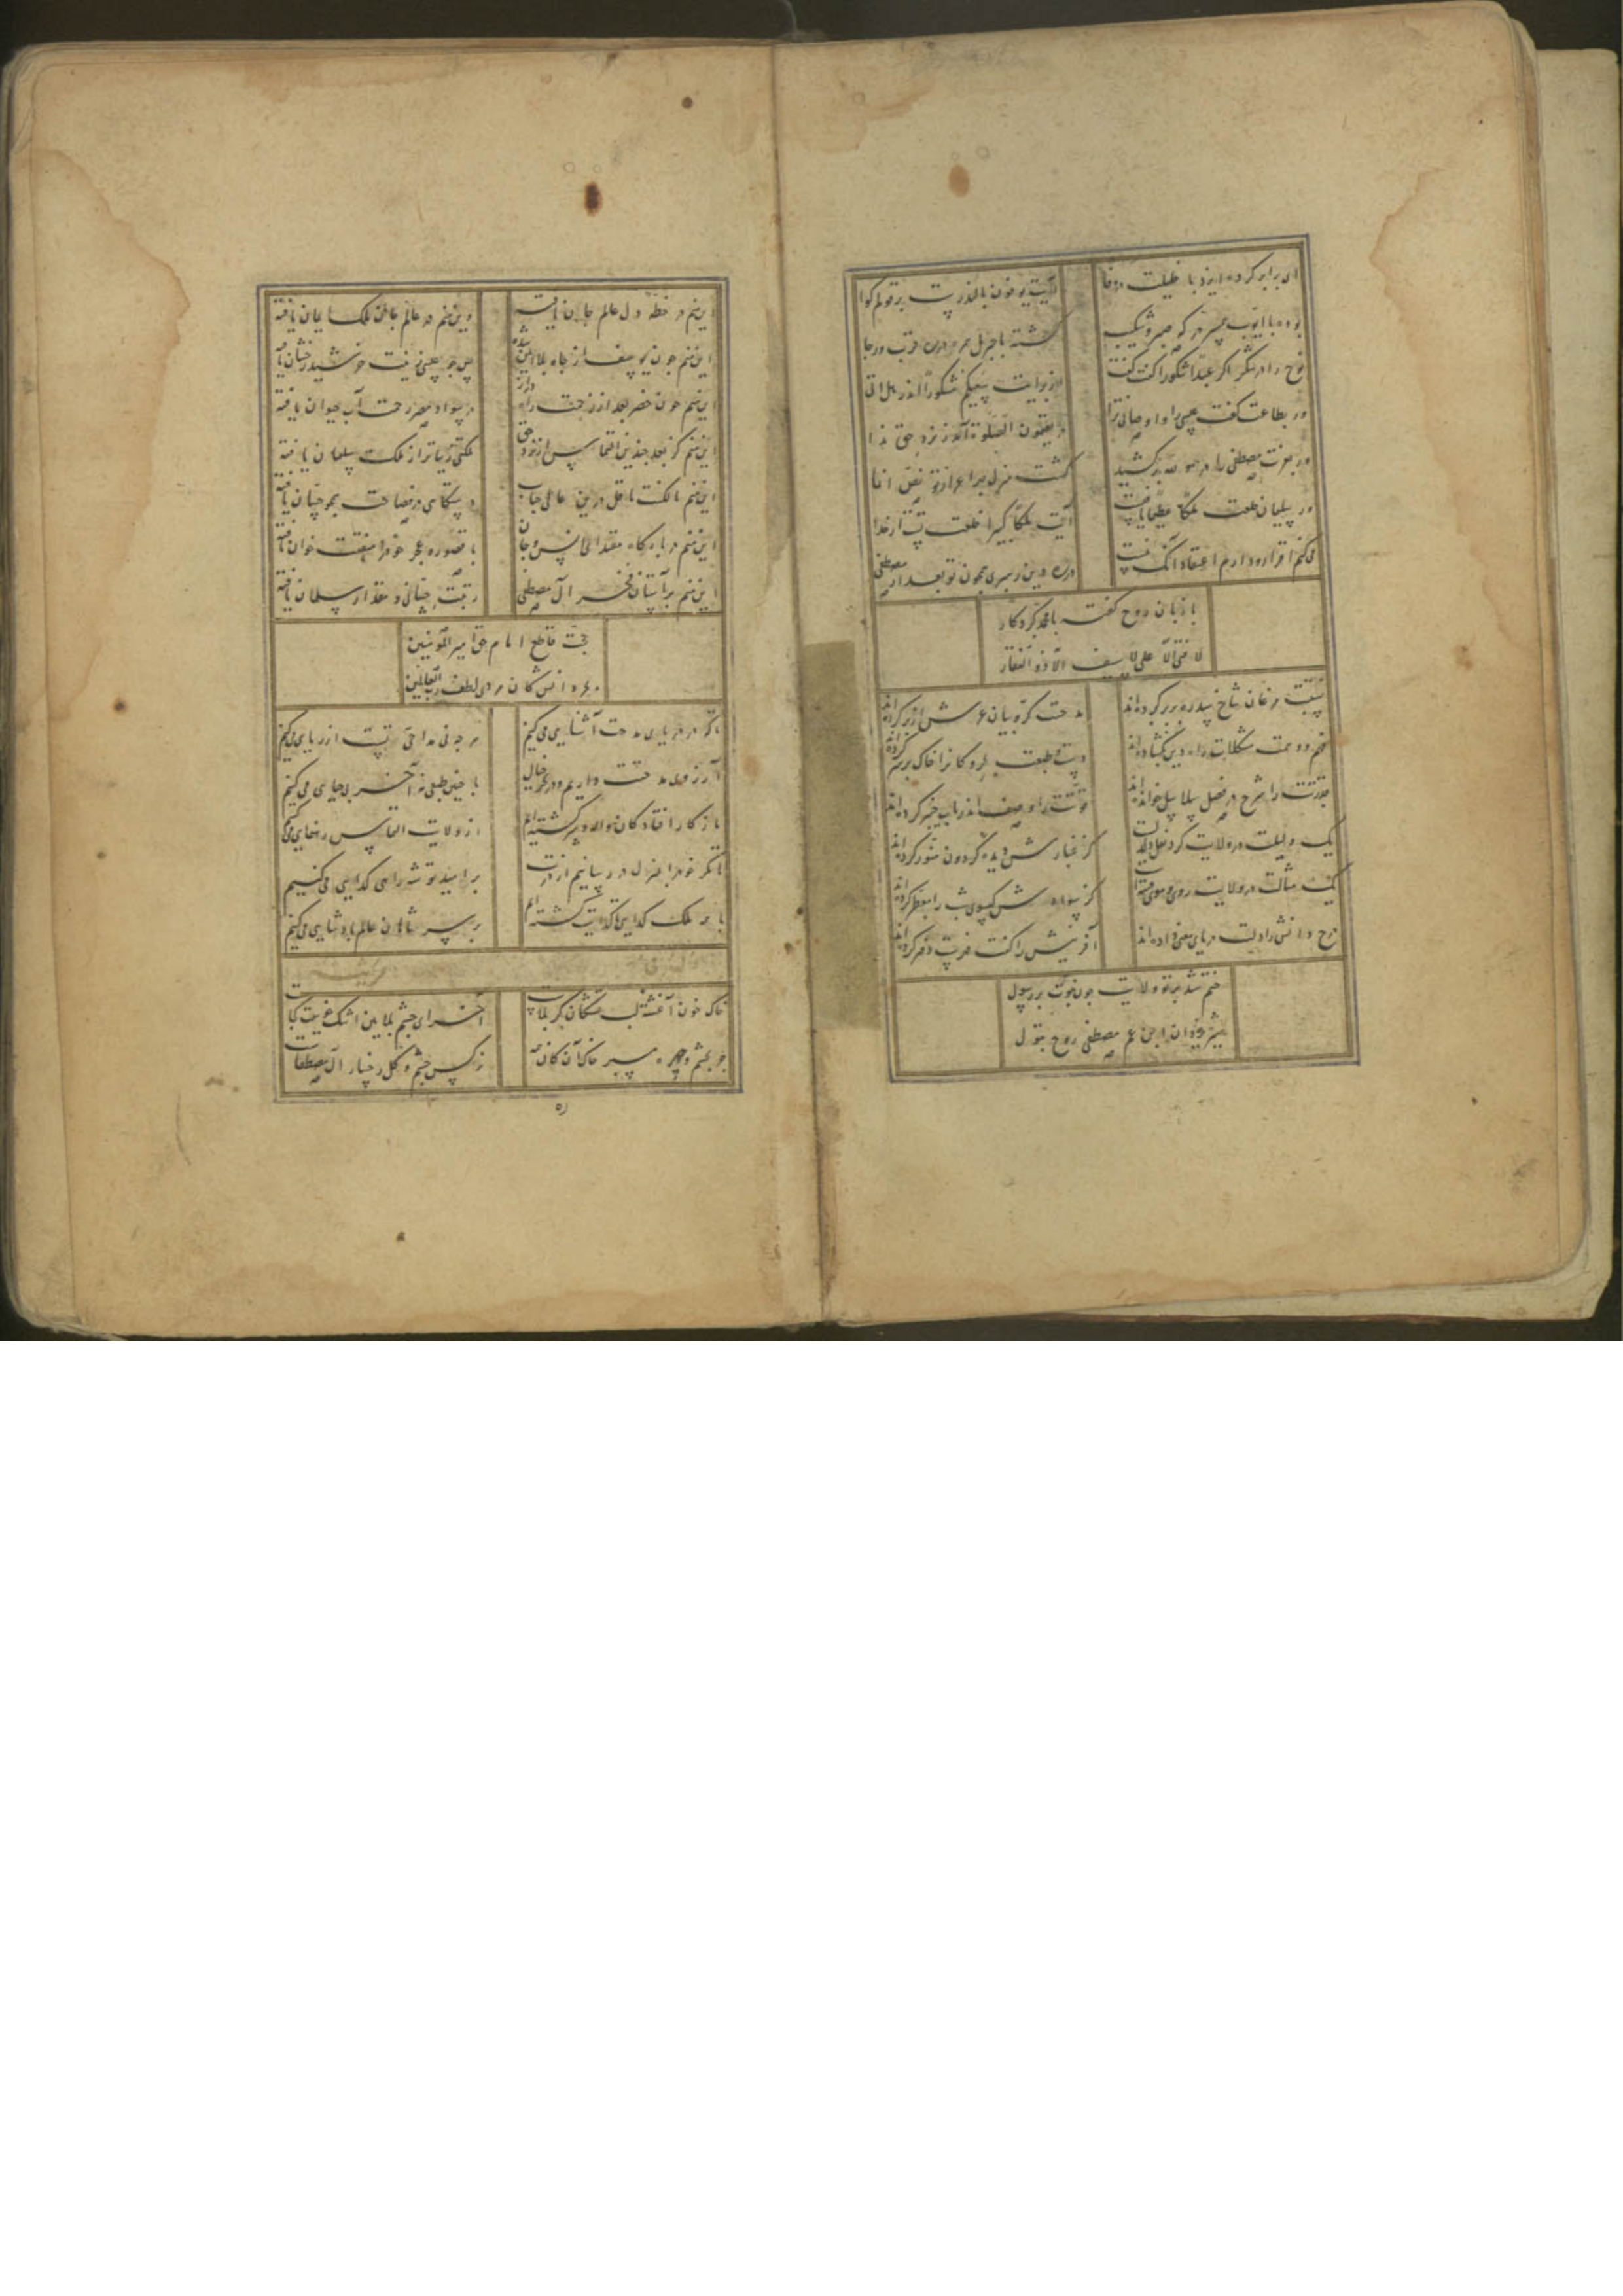 ای برابر کرده ایزد با خلیلت در وفا
آیت یوفون بالنذرست بر قولم کوا
بوده با ایوب همسر در که صبر و شکیب
کشته با جبریل همره در ره قرب و رجا
نوح را در شکر اکر عبدا شکورا گفت گفت
از برایت سعیکم مشکورا اندر هل اتی
ور بطاعت گفت عیسی را و اوصانی ترا
در یقیمون الصلوة آمد ز نزد حق ندا
ور بعزت مصطفی را در
گشت منزل مر ترا از نص انما
ور سلیمان خلعت ملکا عظیما یافتست
آیت ملکا کبیرا خلعت تست از خدا
می کنم اقرار و دارم اعتقاد آنک نیست
در ره دین رهبری همچون تو بعد از مصطفی
با زبان روح گفته با محمد کردکار
لا فتی الا علی لا سیف الا ذو الفقار
نسبت مرغان شاخ سدره بر بر کرده اند
مدحت کروبیان عرش از بر کرده اند
فهم و وهمت مشکلات راه دین بگشاده اند
دست و طبعت بحر و کان را خاک بر سر کرده اند
قدرتت را شرح در فصل سلاسل خوانده اند
قوتت را وصف اندر باب خیبر کرده اند
یک دلیلت در ولایت کرد نعل دلدلست
کز غبارش دیده گردون منور کرده اند
یک مثالت در ولایت روی و موی
کز سوادش گیسوی شب را معطر کرده اند
شرح دانش را دلت دریای معنی داده اند
آفرینش را کفت فهرست دفتر کرده اند
ختم شد بر تو ولایت چون نبوت بر رسول
شیر یزدان ابن عم مصطفی زوج بتول
این منم در خطه دل عالم جان یافته
وین منم در عالم جان ملک ایمان یافته
این منم چون یوسف از چاه بلا ایمن شده
پس چو عیسی رفعت خورشید رخشان یافته
این منم چون خضر بعد از زحمت راه دراز
در سواد مصر رحمت آب حیوان یافته
این منم کز بعد چندین التماس از نزد حق
ملکتی زیباتر از ملک سلیمان یافته
این منم با نکنت باقل درین عالی جناب
دستکاهی در فصاحت همچو حسان یافته
این منم در بارگاه مقتدای انس و جان
با قصور عجز خود را منقبت خوان یافته
این منم بر آستان فخر آل مصطفی
رتبت حسانی و مقدار سلمان یافته
حجت قاطع امام حق امیر المؤمنین
بحر دانش کان مردی لطف رب العالمین
تا گذر در دریای مدحت آشنایی می کنیم
هر چه نی مداحی تست از ریایی می کنیم
آرزوی مدحتت داریم و در عرض خیال
با چنین طبعی نه آخر بی حیایی می کنیم
ما ز کار افتادگان واله و سرگشته ایم
از ولایت التماس رهنمایی می کنیم
تا مگر خود را بمنزل در رسانیم از درت
بر امید توشه راهی گدایی می کنیم
تا به ملک گدایی گدایت گشته ایم
بر سر شاهان عالم پادشایی می کنیم
مرثیه
خاک خون آغشته لب تشنگان کربلاست
آخر ای چشم بلابین اشک خونینت کجاست
جز بچشم و چهره مسپر خاک آن کان همه
نرگس چشم و گل رخسار آل مصطفاست